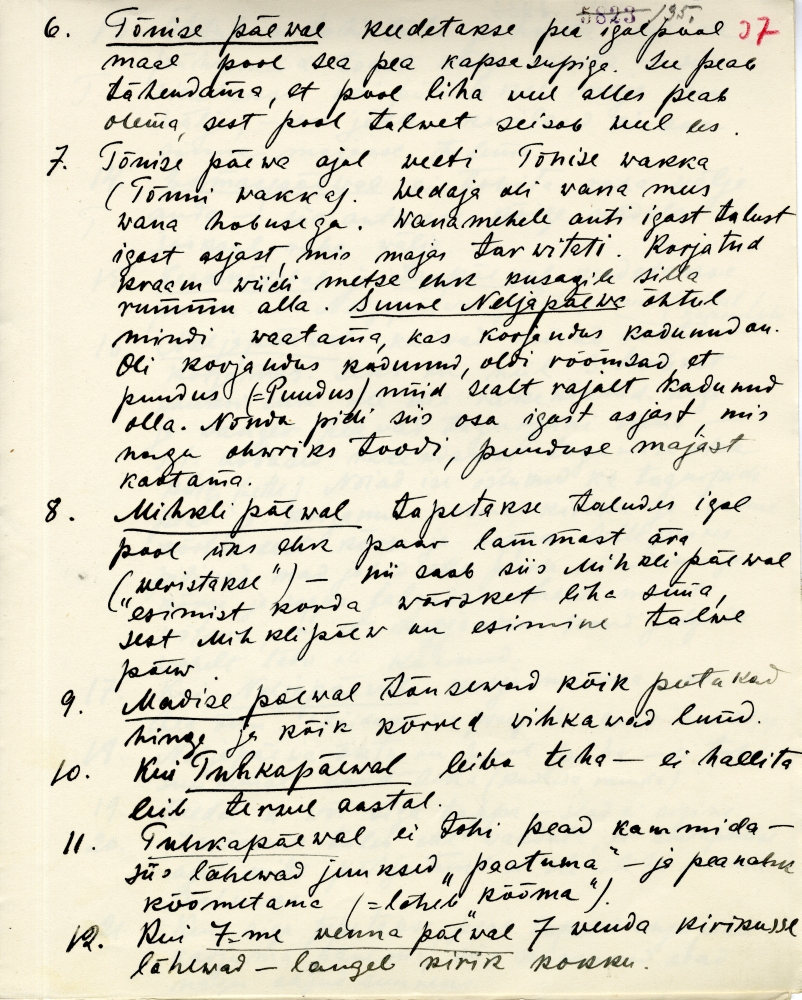 5823 /95 37
6. Tõnise päewal keedetakse pea igalpool
maal pool sea pea kapsasupiga. See peab
tähendama, et pool liha weel alles peab
olema, sest pool talwet seisab weel ees.
7. Tõnise päewa ajal weeti Tõnise wakka
(Tõnni wakka). Wedaja oli wana mees
wana hobusega. Wanamehele anti igast talust
igast asjast, mis majas tarwitati. Korjatud
kraam wiidi metsa ehk kusagile silla
rummu alla. Suure Neljapäewa õhtul
mindi waatama, kas korjandus kadunud on.
Oli korjandus kadunud, oldi rõõmsad, et
puudus (=Puudus) nüid sealt rajalt kadunud
olla. Nõnda pidi siis osa igast asjast, mis
nagu ohwriks toodi, puuduse majast
kaotama.
8. Mihkli päewal tapetakse taludes igal
pool üks ehk paar lammast ära
("weristakse") — nii saab siis Mihkli päewal
esimist korda wärsket liha süüa,
sest Mihklipäew on esimine talwe
päew.
9. Madise päewal tõusewad kõik putukad
hinge ja kõik kõrred wihkawad lund.
10. Kui Tuhkapäewal leiba teha — ei hallita
leib terwel aastal.
11. Tuhkapäewal ei tohi pead kammida —
siis lähewad juuksed „paatuma" — ja peanahk
kõõmetama (=läheb „kõõma").
12. Kui 7-me wenna päewal 7 wenda kirikusse
lähewad — langeb kirik kokku.